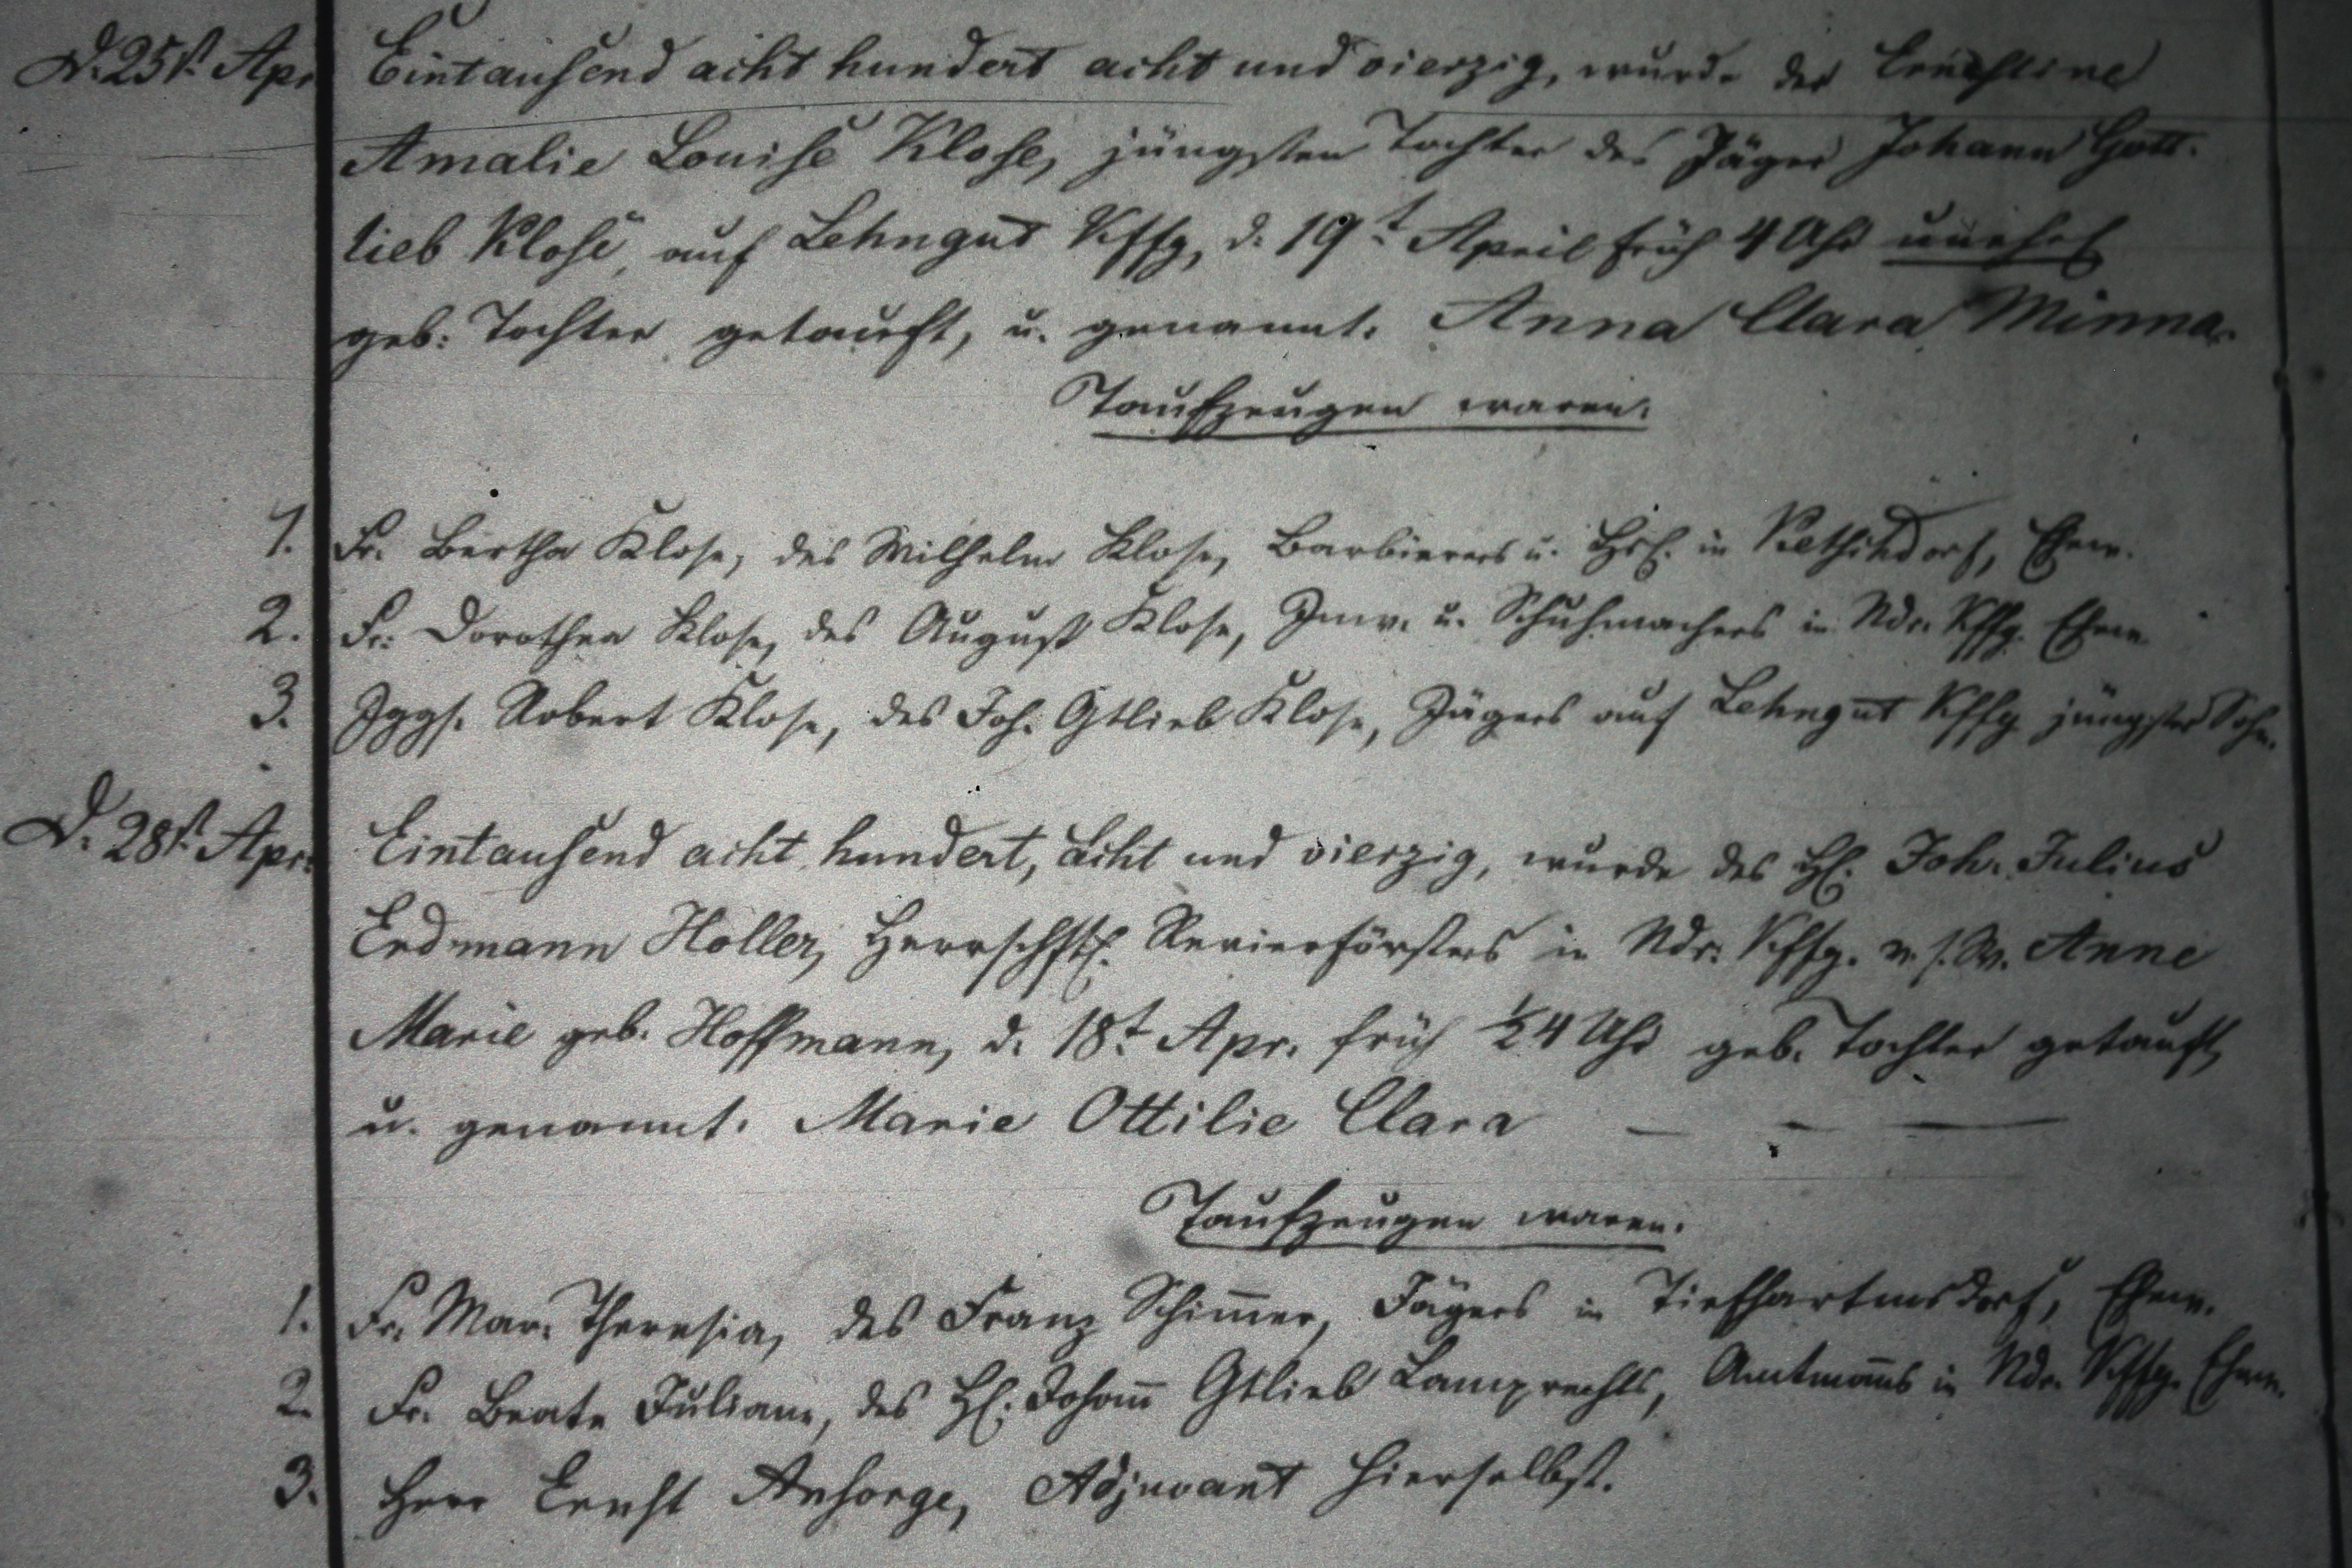 D. 25st. Apr. Eintausend acht hundert acht und vierzig, wurde der Ernestine
Amalie Louise Klose, jüngsten Tochter des Jäger Johann Gott-
lieb Klose, auf Lehngut Kffg, d. 19t April früh 4 Uhr unehel
geb: Tochter getauft, u. genannt. Anna Clara Minna.
Taufzeugen waren.
1. Fr. Bertha Klose, des Wilhelm Klose, Barbierers u. Hsl. in Ehew.
2. Fr. Dorothea Klose, des August Klose, Inw. u. Schuhmachers in Ndr. Kffg. Ehew.
3. Jggs. Robert Klose, des Joh. Gtlieb Klose, Jägers auf Lehngut Kffg jüngster Sohn.
D. 28st. Apr. Eintausend acht hundert, acht und vierzig, wurde des H. Joh. Julius
Erdmann Holler, Herrschftl. Revierförsters in Ndr. Kffg. v. s. W. Anne
Marie geb. Hoffmann, d. 18t. Apr. früh ½4 Uhr geb. Tochter getauft,
u. genannt. Marie Ottilie Clara — - —
Taufzeugen waren.
1. Fr. Mar. Theresia, des Franz Schim̅er, Jägers in Tiefhartmsdorf, Ehew.
2. Fr. Beate Juliane, des H. Johan̅ Gtlieb Lamprechts, Amtman̅s in Ndr. Kffg. Ehew.
3. Herr Ernst Ansorge, Adjuvant hierselbst.